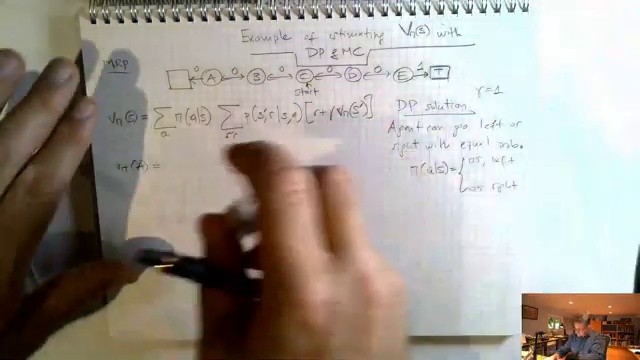 Example of estimating Vπ(s) with
DP & MC
MRP
0 A 0 B 0 C 0 D 0 E 1 T
start
γ=1
Vπ(s) = Σa π(a|s) Σs',r p(s',r|s,a) [r+γVπ(s')]
DP solution
Agent can go left or
right with equal prob.
π(a|s) = { 0.5, left
0.5 right
Vπ(A) =